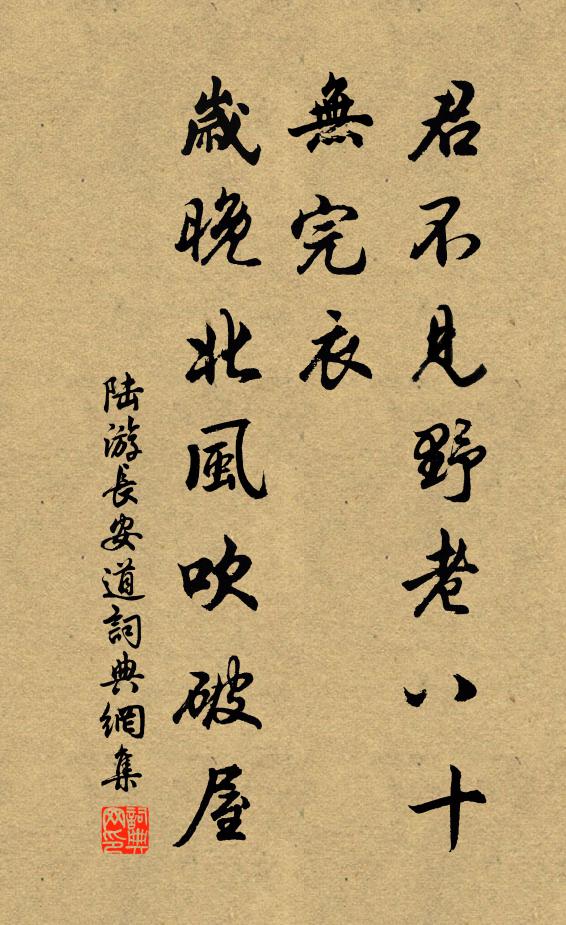 君不見野老八十
無完衣
歲晚北風吹破屋
陆游長安道詞典網集
詞典网印